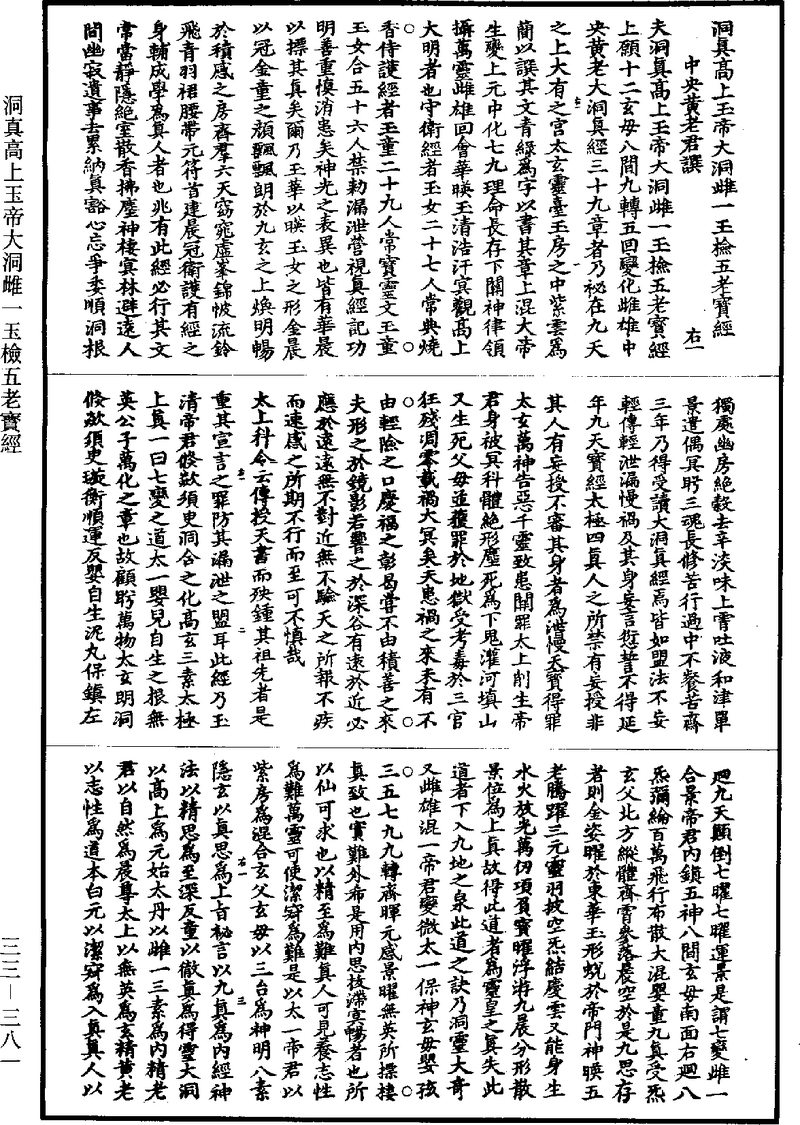 洞真高上玉帝大洞雌一玉檢五老寶經
中央黃老君譔 右一
夫洞真高上玉帝大洞雌一玉檢五老寶經
上願十二玄母八間九轉五回變化雌雄中
央黃老大洞真經三十九章者乃祕在九天
之上大有之宮太玄靈臺玉房之中紫雲為
蘭以譔其文青綠為字以書其章上混大帝
生變上元中化七九理命長存下關神律領
攝萬靈雌雄回會華暎玉清浩汗冥觀高上
大明者也守衛經者玉女二十七人常典燒
香侍護經者玉童二十九人常寶靈文玉童
玉女合五十六人禁勅漏泄營視真經記功
明善重慎消患矣神光之表異也皆有華晨
以摽其真矣爾乃玉華以暎玉女之形金晨
以冠金童之顏飄飄朗於九玄之上煥明暢
於積感之房齊羣六天窈窕虛峯錦帔流鈴
飛青羽裙腰帶元符首建晨冠衛護有經之
身輔成學為真人者也兆有此經必行其文
常當靜隱絕室散香拂塵神棲冥林避遠人
間幽寂遺事去累納真豁心忘爭柔順洞根
獨處幽房絕穀去辛淡味上霄吐液和津單
景遺偶冥眄三魂長修苦行過中不餐苦齋
三年乃得受讀大洞真經焉皆如盟法不妄
輕傳輕泄漏慢禍及其身妄言愆誓不得延
年九天寶經太極四真人之所禁有妄授非
其人有妄授不審其身者為泄慢天寶得罪
太玄萬神告惡千靈致患聞罪太上削生帝
君身被冥科體絕形塵死為下鬼灌河填山
又生死父母並獲罪於地獄受考毒於三官
狂殘凋零載禍大冥矣夫患禍之來未有不
由輕險之口慶福之彰曷嘗不由積善之來
夫形之於鏡影若響之於深谷有遠於近必
應於遠遠無不對近無不驗天之所報不疾
而速感之所期不行而至可不慎哉
太上科令云傳授天書而殃鍾其祖先者是
重其宣言之罪防其漏泄之盟耳此經乃玉
清帝君倐歘須臾洞合之化高玄三素太極
上真一曰七變之道太一嬰兒自生之根無
英公子萬化之章也故顧眄萬物太玄明洞
倐歘須臾璇衡順運反嬰自生泥丸保鎮左
迴九天顛倒七曜七曜運景是謂七變雌一
合景帝君內鎮五神八間玄母南面右迴八
炁彌綸百萬飛行布散大混嬰童九真受炁
玄父北方縱體齊霄參落晨空於是九思存
者則金姿曜於東華玉形蛻於帝門神暎五
老騰躍三元靈羽披空炁結慶雲又能身生
水火放光萬仞項負寶曜浮游九晨分形散
景位為上真故得此道者為靈皇之真失此
道者下入九地之泉此道之訣乃洞靈大奇
又雌雄混一帝君變微太一保神玄母嬰孩
三五七九九轉齊暉元感景曜無英所摽棲
真致也實難外希是用內思披滯宣暢者也所
以仙可求也以精至為難真人可見養志性
為難萬靈可使潔穿為難是以太一帝君以
紫房為混合玄父玄母以三台為神明八素
隱玄以真思為上旨秘言以九真為內經神
法以精思為至深反童以徹真為得靈大洞
以高上為元始太丹以雌一三素為內精老
君以自然為晨尊太上以無英為玄精黃老
以志性為道本白元以潔穿為入真真人以
洞真高上玉帝大洞雌一玉檢五老寶經
三三—三八一